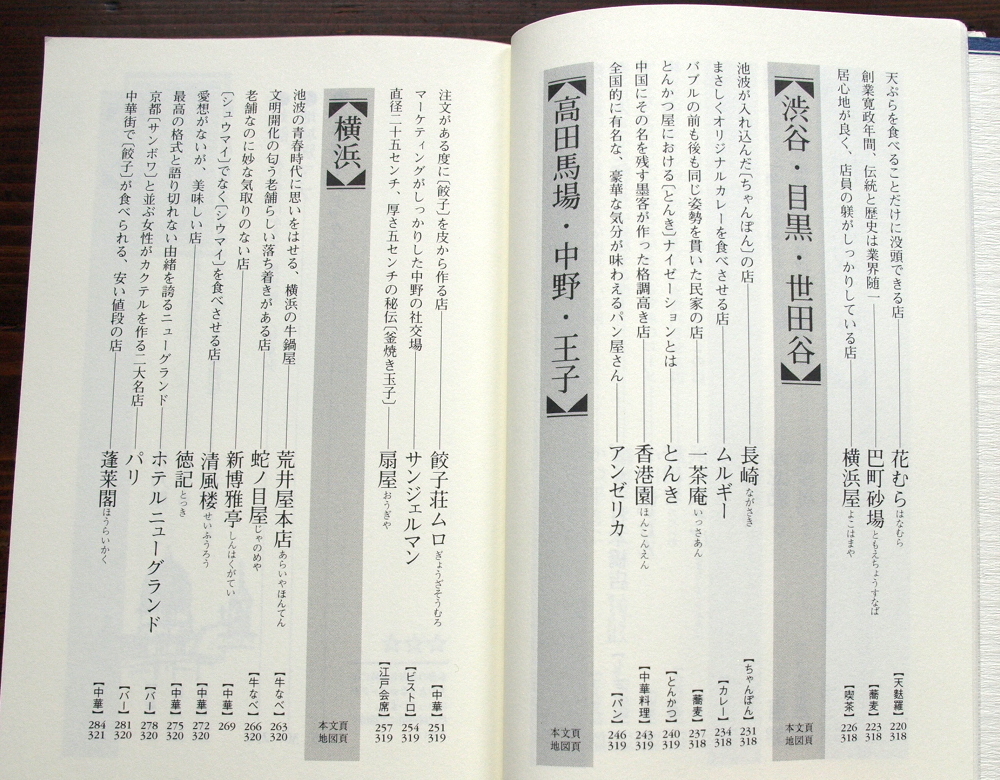 天ぷらを食べることだけに没頭できる店 花むら はなむら 【天麩羅】 220 318
創業寛政年間、伝統と歴史は業界随一 巴町砂場 ともえちょうすなば 【蕎麦】 223 318
居心地が良く、店員の躾がしっかりしている店 横浜屋 よこはまや 【喫茶】 226 318
渋谷・目黒・世田谷 本文頁 地図頁
池波が入れ込んだ〔ちゃんぽん〕の店 長崎 ながさき 【ちゃんぽん】 231 318
まさしくオリジナルカレーを食べさせる店 ムルギー 【カレー】 234 318
バブルの前も後も同じ姿勢を貫いた民家の店 一茶庵 いっさあん 【蕎麦】 237 318
とんかつ屋における〔とんき〕ナイゼーションとは とんき 【とんかつ】 240 319
中国にその名を残す墨客が作った格調高き店 香港園 ほんこんえん 【中華料理】 243 319
全国的に有名な、豪華な気分が味わえるパン屋さん アンゼリカ 【パン】 246 319
高田馬場・中野・王子 本文頁 地図頁
注文がある度に〔餃子〕を皮から作る店 餃子荘ムロ ぎょうざそうむろ 【中華】 251 319
マーケティングがしっかりした中野の社交場 サンジェルマン 【ビストロ】 254 319
直径二十五センチ、厚さ五センチの秘伝〔釜焼き玉子〕 扇屋 おうぎや 【江戸会席】 257 319
横浜 本文頁 地図頁
池波の青春時代に思いをはせる、横浜の牛鍋屋 荒井屋本店 あらいやほんてん 【牛なべ】 263 320
文明開化の匂う老舗らしい落ち着きがある店 蛇ノ目屋 じゃのめや 【牛なべ】 266 320
老舗なのに妙な気取りのない店 新博雅亭 しんはくがてい 【中華】 269
〔シュウマイ〕でなく〔シウマイ〕を食べさせる店 清風楼 せいふうろう 【中華】 272 320
愛想がないが、美味しい店 徳記 とっき 【中華】 275 320
最高の格式と語り切れない由緒を誇るニューグランド ホテルニューグランド 【バー】 278 320
京都〔サンボワ〕と並ぶ女性がカクテルを作る二大名店 パリ 【バー】 281 320
中華街で〔餃子〕が食べられる、安い値段の店 蓬莱閣 ほうらいかく 【中華】 284 321